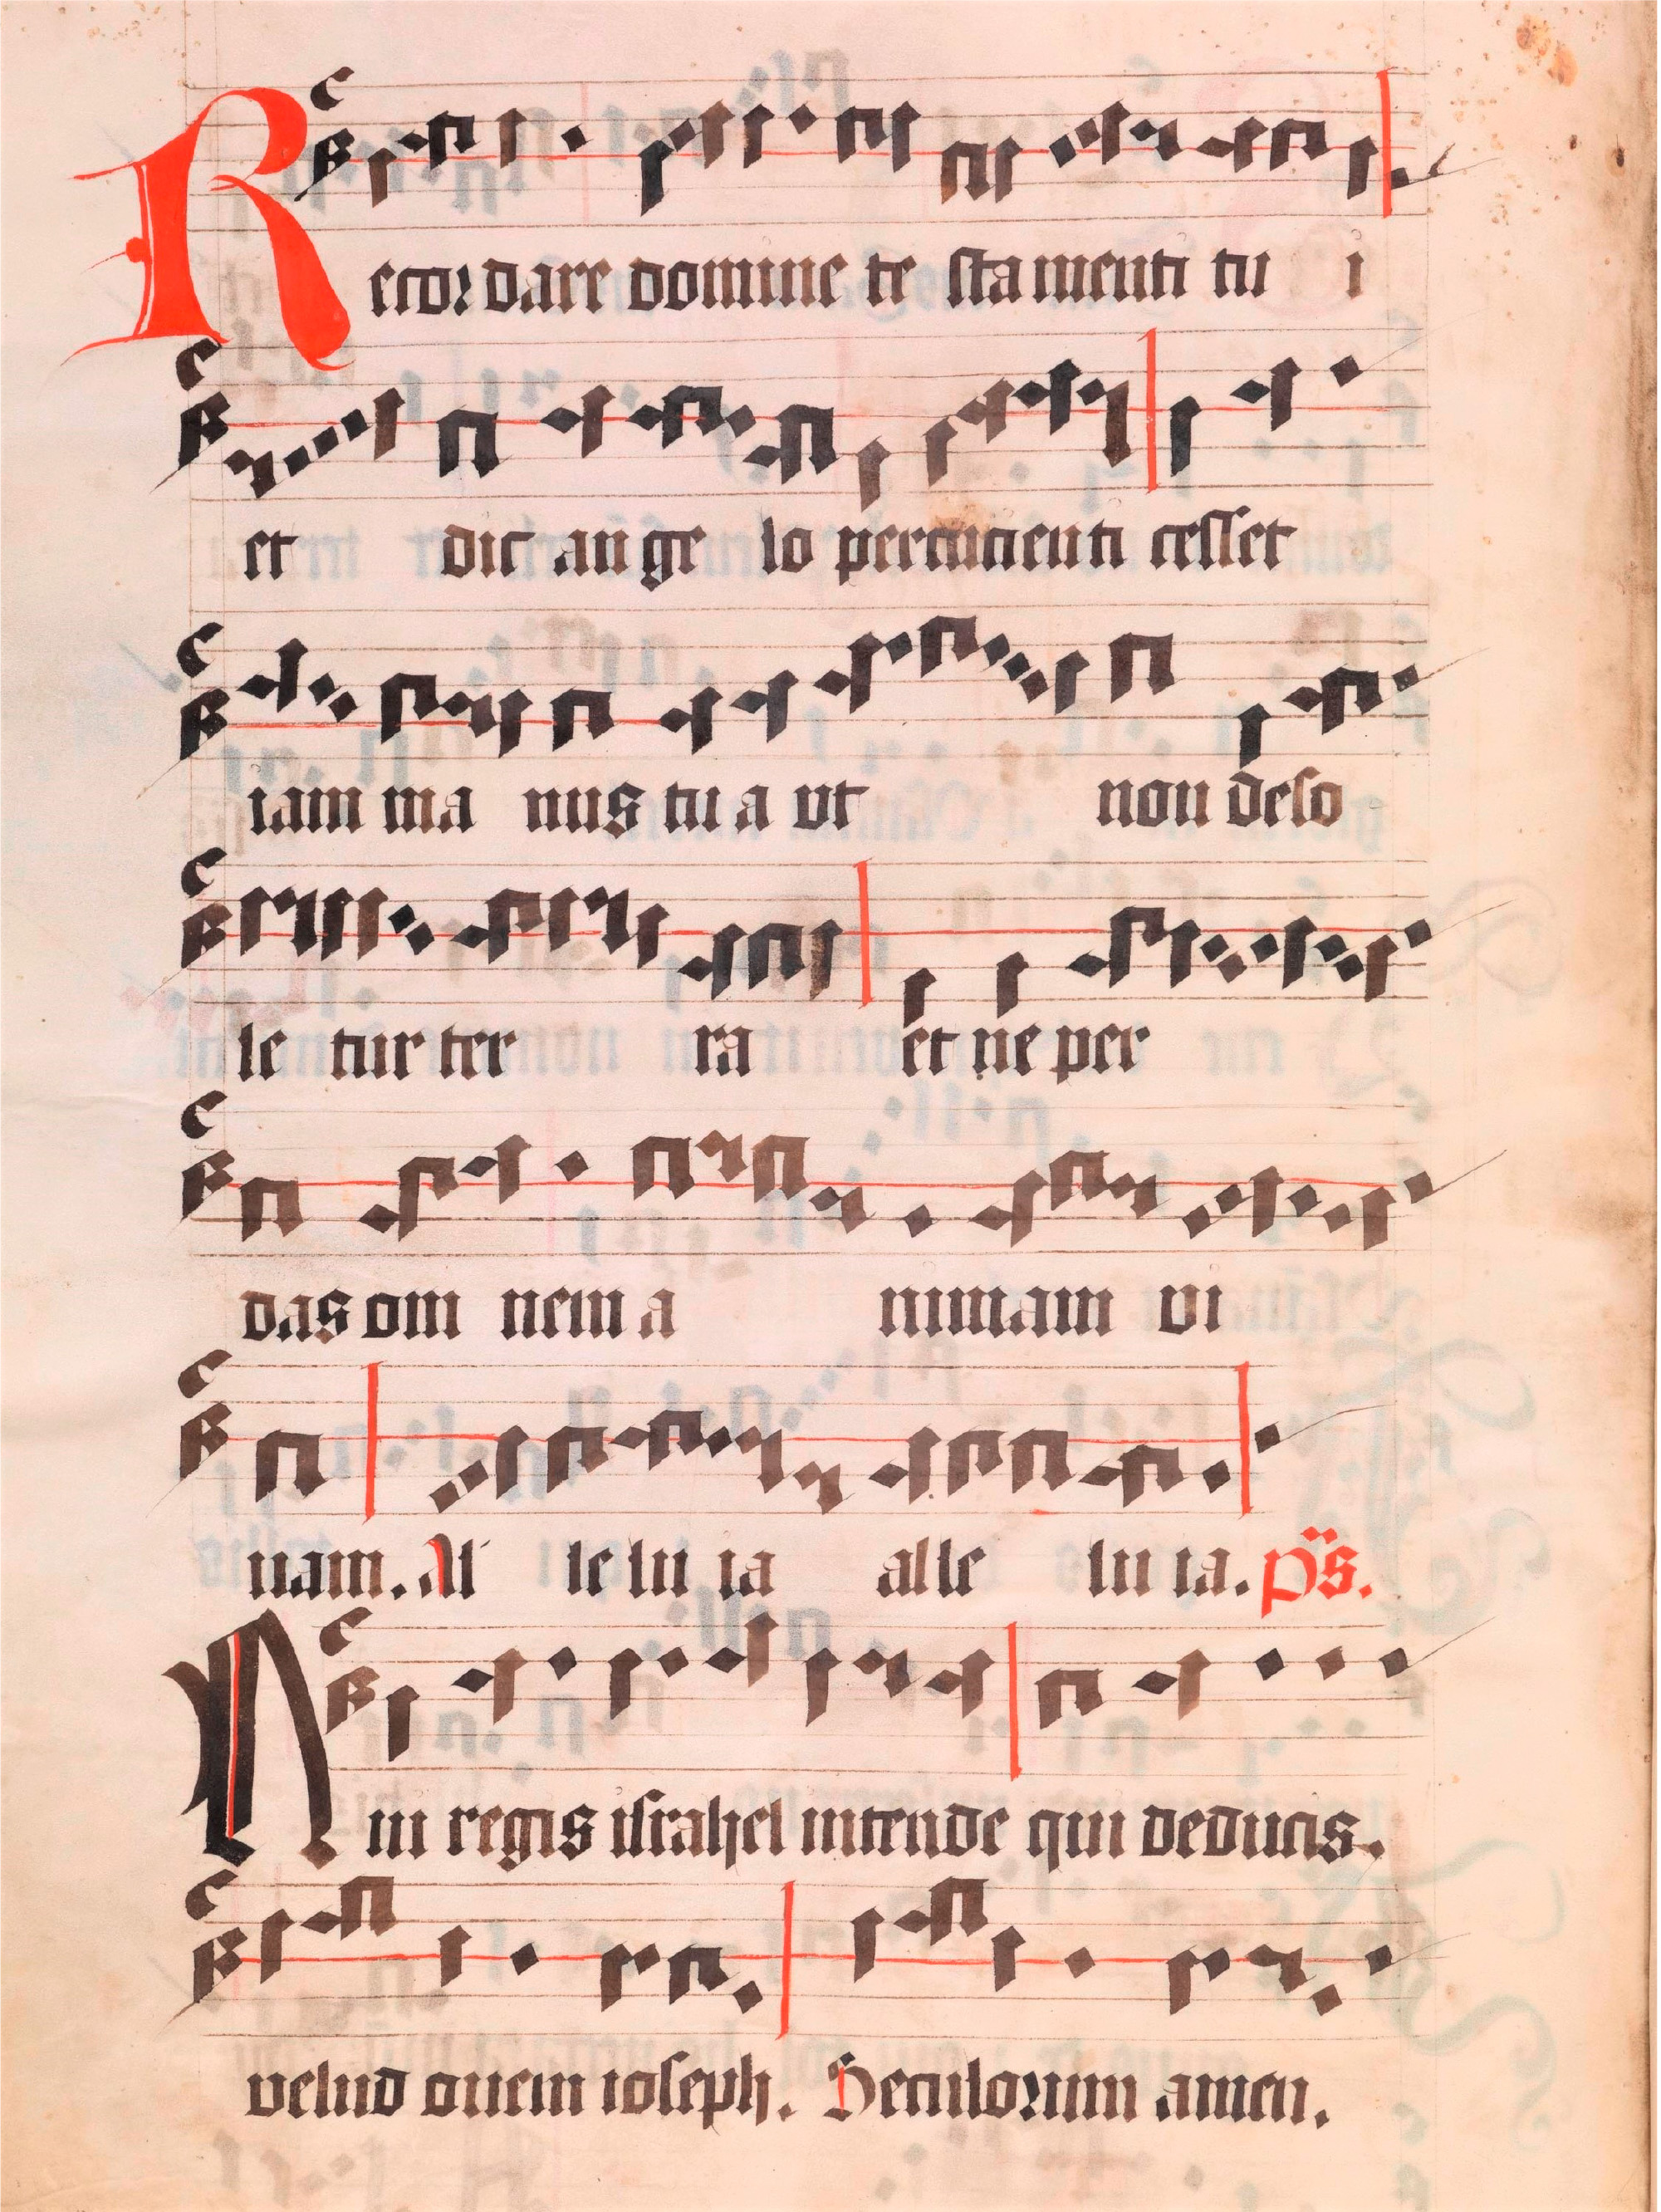 Recordare domine te stamenti tu i
et dic an ge lo percucienti cesset
iam ma nus tu a vt non deso
le tur ter ra et ne per
das om nem a nimam vi
uam. All le lu ia al le lu ia. p̈s.
Qui regis israhel intende qui deducis.
velud ouem ioseph. Seculorum amen.